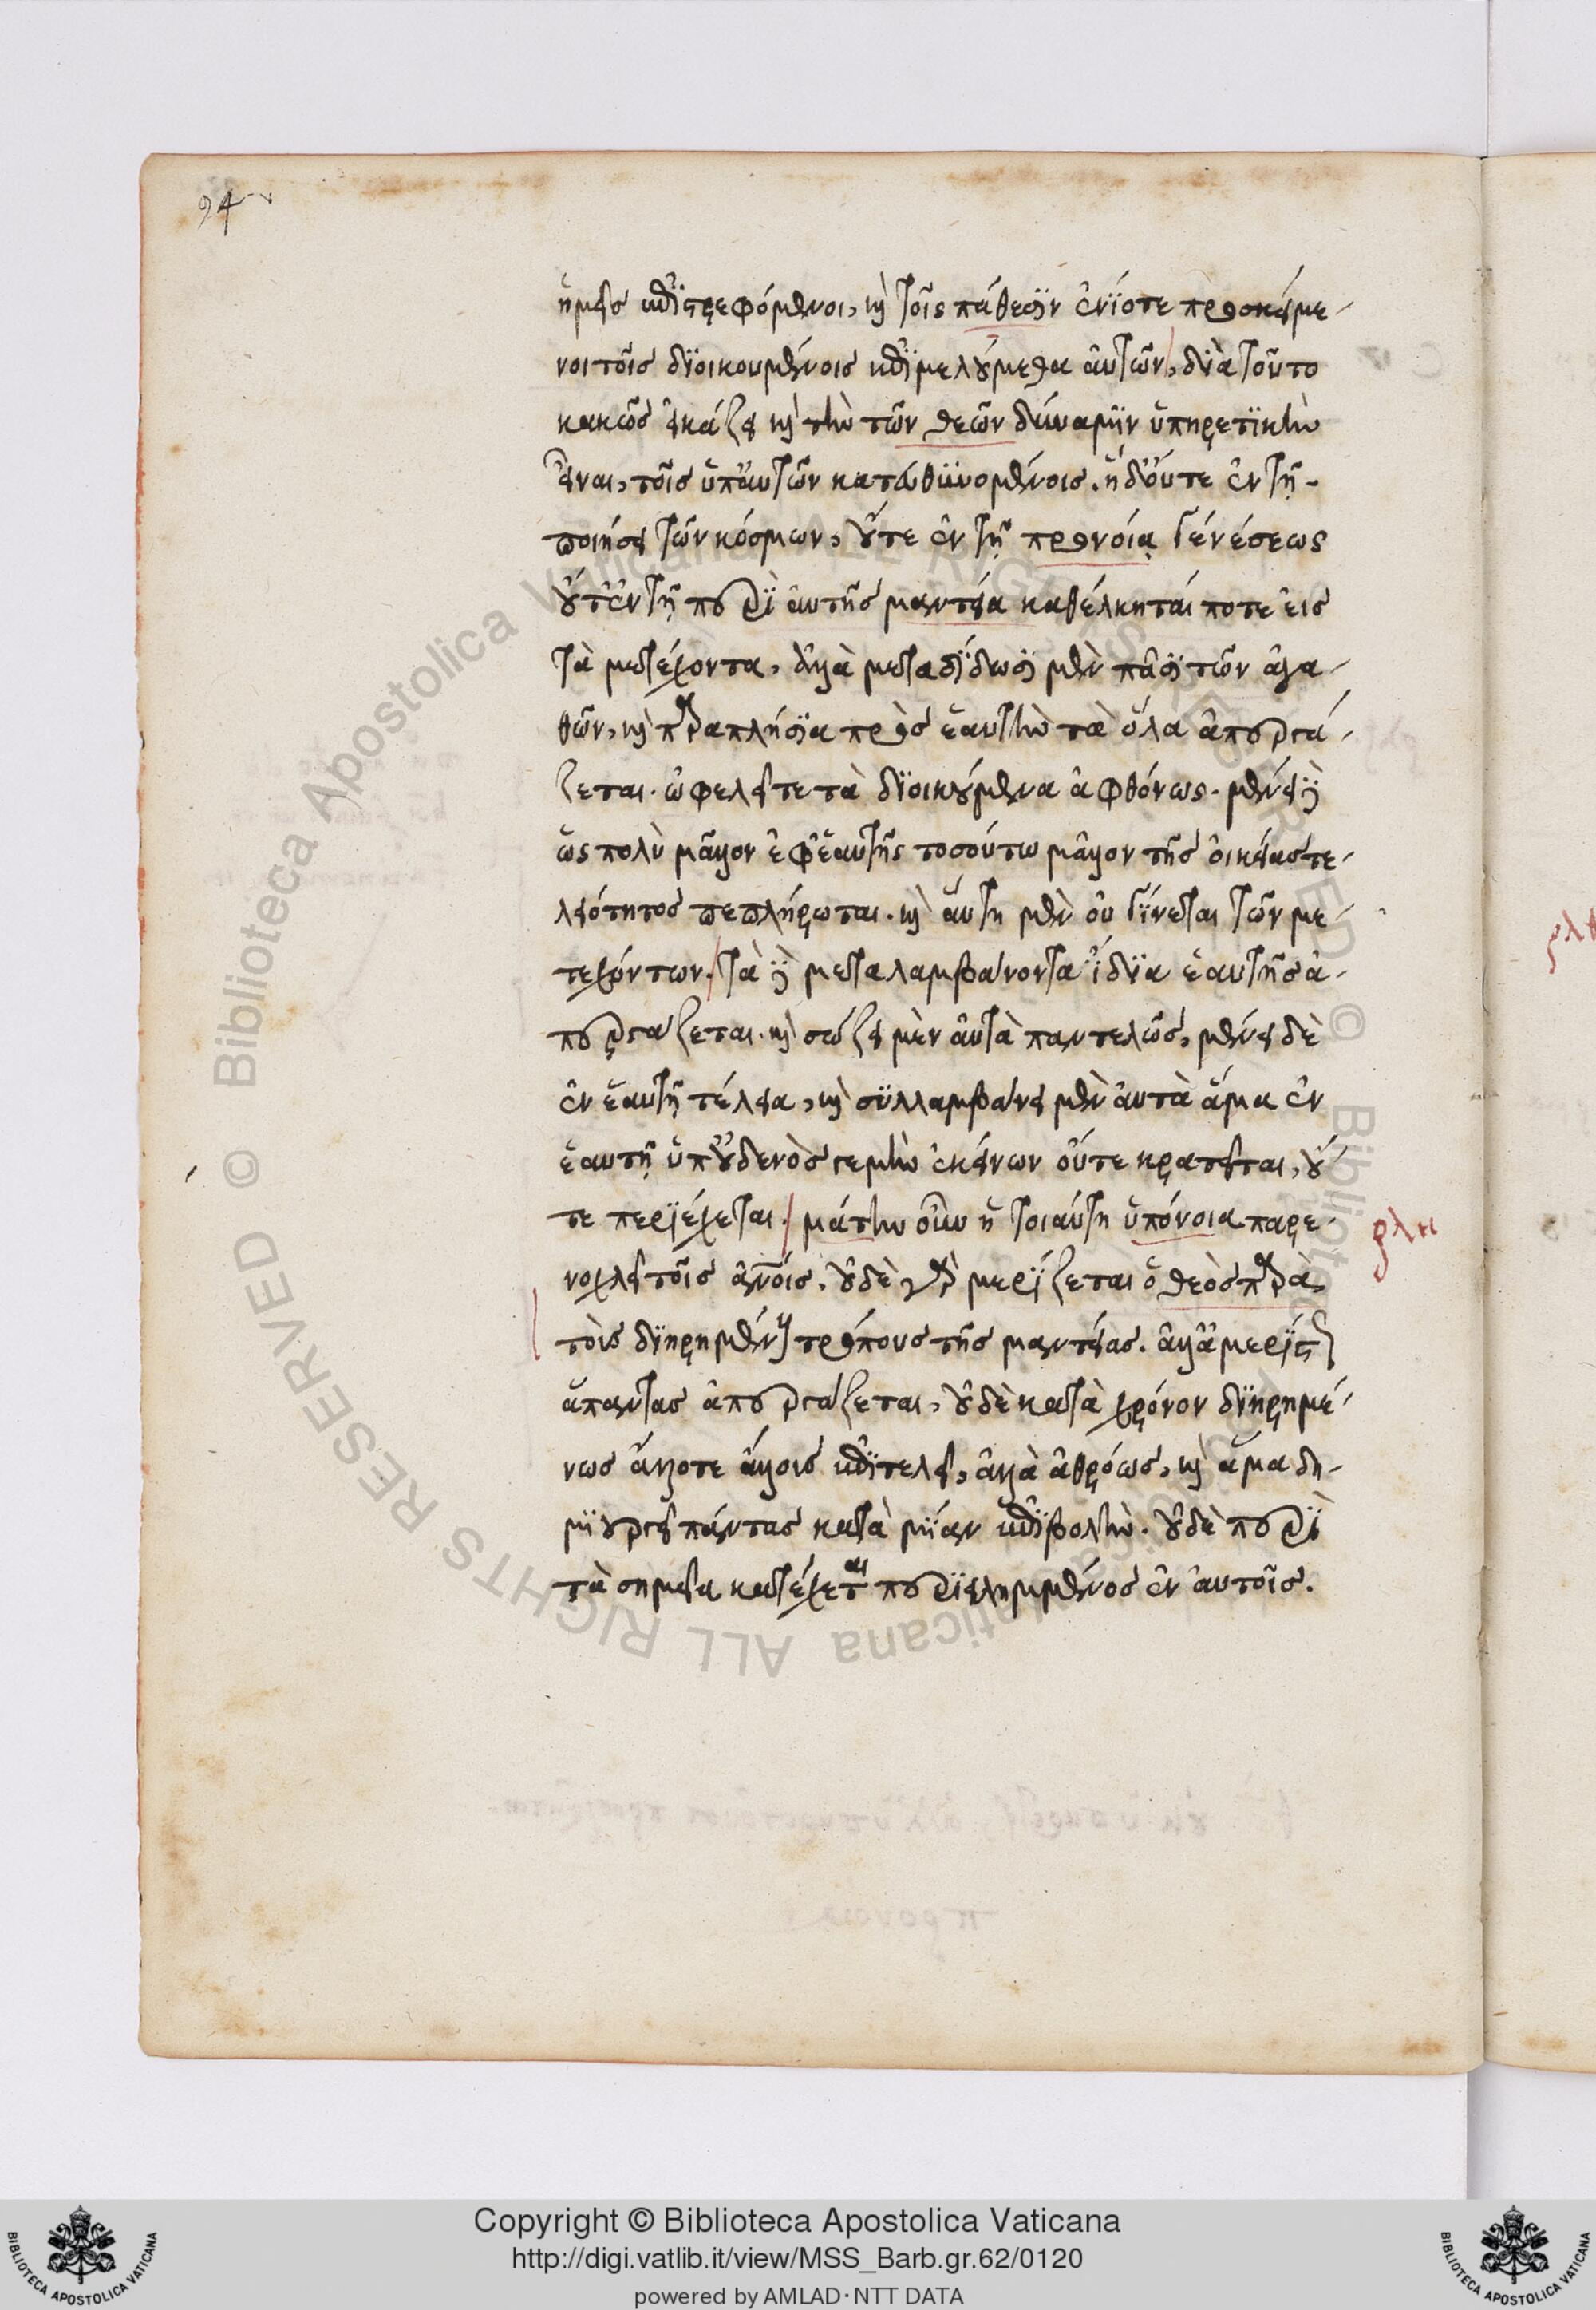 94
ἡμεῖς ἐπιστρεφόμενοι, καὶ τοῖς πάθεσιν ἐνίοτε προσκείμε-
νοι τοῖς διοικουμένοις ἐπιμελούμεθα αὐτῶν, διὰ τοῦτο
κακῶς εἰκάζει καὶ τὴν τῶν θεῶν δύναμιν ὑπηρετικὴν
εἶναι, τοῖς ὑπ' αὐτῶν κατευθυνομένοις. ἡ δ' οὔτε ἐν τῇ
ποιήσει τῶν κόσμων, οὔτε ἐν τῇ προνοίᾳ γενέσεως
οὔτ' ἐν τῇ περὶ αὐτῆς μαντείᾳ καθέλκηταί ποτε εἰς
τὰ μετέχοντα, ἀλλὰ μεταδίδωσι μὲν πᾶσι τῶν ἀγα-
θῶν, καὶ παραπλήσια πρὸς ἑαυτὴν τὰ ὅλα ἀπεργά-
ζεται. ὠφελεῖ τε τὰ διοικούμενα ἀφθόνως. μένει δὲ
ὡς πολὺ μᾶλλον ἐφ' ἑαυτῆς τοσούτω μᾶλλον τῆς οἰκείας τε-
λειότητος πεπλήρωται. καὶ αὕτη μὲν οὐ γίνεται τῶν με-
τεχόντων. τὰ δὲ μεταλαμβάνοντα ἴδια ἑαυτῆς ἀ-
περγάζεται. καὶ σώζει μὲν αὐτὰ παντελῶς, μένει δὲ
ἐν ἑαυτῇ τέλεια, καὶ συλλαμβάνει μὲν αὐτὰ ἅμα ἐν
ἑαυτῇ ὑπ' οὐδενὸς γε μὴν ἐκείνων οὔτε κρατεῖται, οὔ-
τε περιέχεται. μάτην οὖν ἡ τοιαύτη ὑπόνοια παρε-
νοχλεῖ τοῖς ἀνοις. οὐδὲ γὰρ μερίζεται ὁ θεὸς παρὰ
τοὺς διῃρημένους τρόπους τῆς μαντείας. ἀλλ' ἀμερίστως
ἅπαντας ἀπεργάζεται, οὐδὲ κατὰ χρόνον διῃρημέ-
νως ἄλλοτε ἄλλοις ἐπιτελεῖ, ἀλλὰ ἀθρόως, καὶ ἅμα δη-
μιουργεῖ πάντας κατὰ μίαν ἐπιβολήν. οὐδὲ περὶ
τὰ σημεῖα κατέχεται περιειλημμένος ἐν αὐτοῖς.
ρλη
Copyright © Biblioteca Apostolica Vaticana
http://digi.vatlib.it/view/MSS_Barb.gr.62/0120
powered by AMLAD·NTT DATA